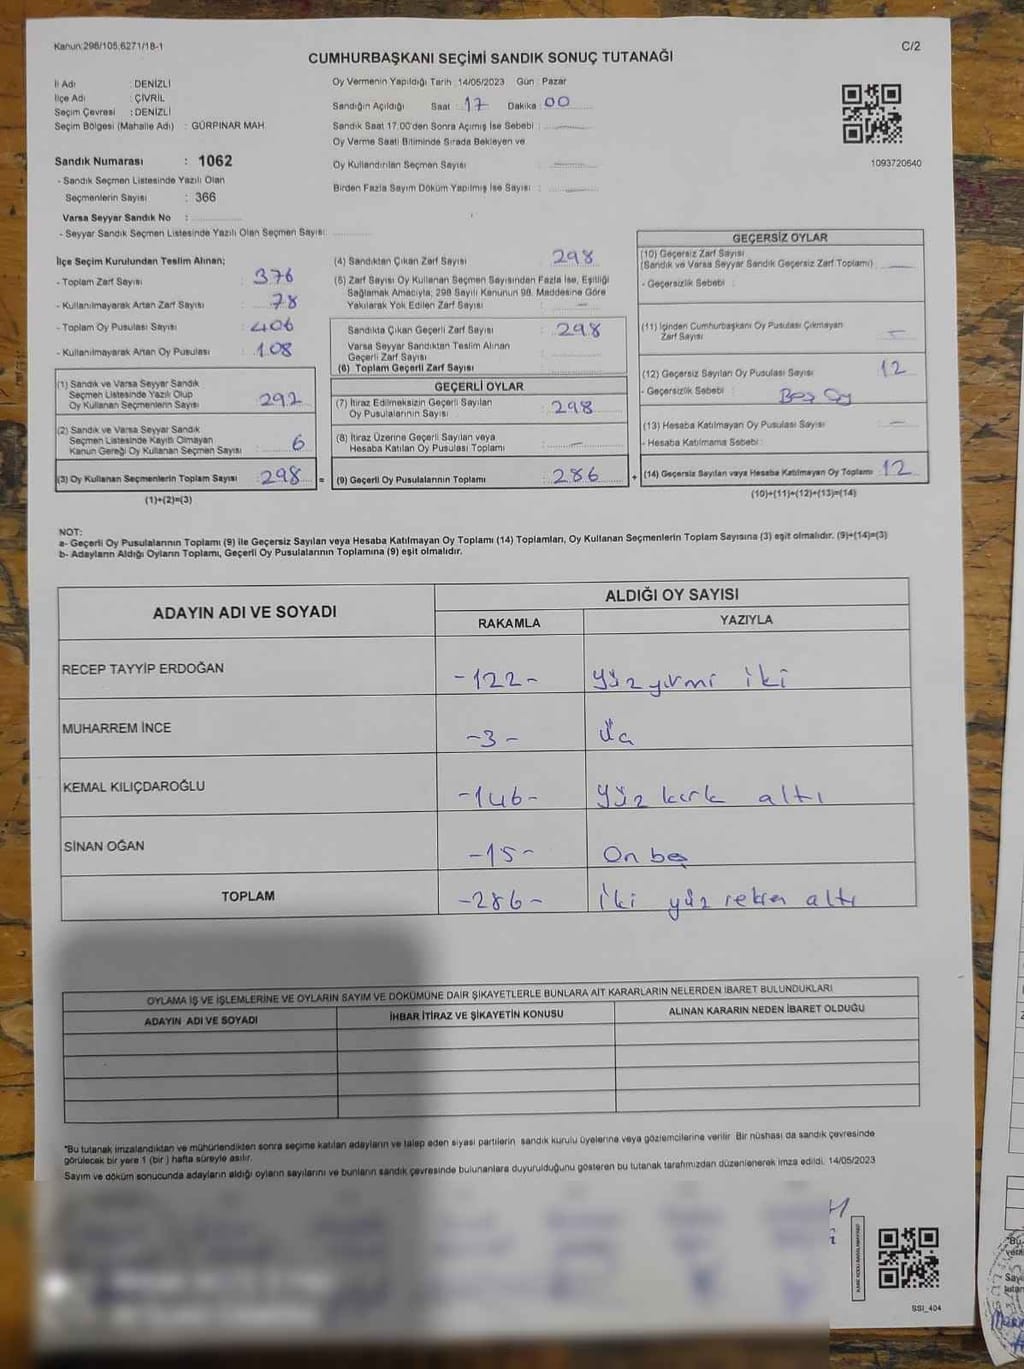 Kanun:298/105,6271/18-1
C/2
CUMHURBAŞKANI SEÇİMİ SANDIK SONUÇ TUTANAĞI
İl Adı : DENİZLİ
İlçe Adı : ÇİVRİL
Seçim Çevresi : DENİZLİ
Seçim Bölgesi (Mahalle Adı) : GÜRPINAR MAH.
Sandık Numarası : 1062
- Sandık Seçmen Listesinde Yazılı Olan
Seçmenlerin Sayısı : 366
Varsa Seyyar Sandık No :
- Seyyar Sandık Seçmen Listesinde Yazılı Olan Seçmen Sayısı:
Oy Vermenin Yapıldığı Tarih :14/05/2023 Gün : Pazar
Sandığın Açıldığı Saat : 17 Dakika : 00
Sandık Saat 17.00'den Sonra Açımış İse Sebebi :
Oy Verme Saati Bitiminde Sırada Bekleyen ve
Oy Kullandırılan Seçmen Sayısı
Birden Fazla Sayım Döküm Yapılmış İse Sayısı :
1093720640
İlçe Seçim Kurulundan Teslim Alınan;
- Toplam Zarf Sayısı : 376
- Kullanılmayarak Artan Zarf Sayısı : 78
- Toplam Oy Pusulası Sayısı : 406
- Kullanılmayarak Artan Oy Pusulası : 108
(1) Sandık ve Varsa Seyyar Sandık
Seçmen Listesinde Yazılı Olup
Oy Kullanan Seçmenlerin Sayısı : 292
(2) Sandık ve Varsa Seyyar Sandık
Seçmen Listesinde Kayıtlı Olmayan
Kanun Gereği Oy Kullanan Seçmen Sayısı : 6
(3) Oy Kullanan Seçmenlerin Toplam Sayısı : 298
(1)+(2)=(3)
(4) Sandıktan Çıkan Zarf Sayısı : 298
(5) Zarf Sayısı Oy Kullanan Seçmen Sayısından Fazla İse, Eşitliği
Sağlamak Amacıyla; 298 Sayılı Kanunun 98. Maddesine Göre
Yakılarak Yok Edilen Zarf Sayısı : -
Sandıkta Çıkan Geçerli Zarf Sayısı : 298
Varsa Seyyar Sandıktan Teslim Alınan
Geçerli Zarf Sayısı
(6) Toplam Geçerli Zarf Sayısı
GEÇERLİ OYLAR
(7) İtiraz Edilmeksizin Geçerli Sayılan
Oy Pusulalarının Sayısı : 298
(8) İtiraz Üzerine Geçerli Sayılan veya
Hesaba Katılan Oy Pusulası Toplamı : -
= (9) Geçerli Oy Pusulalarının Toplamı : 286
GEÇERSİZ OYLAR
(10) Geçersiz Zarf Sayısı
(Sandık ve Varsa Seyyar Sandık Geçersiz Zarf Toplamı) :
- Geçersizlik Sebebi :
(11) İçinden Cumhurbaşkanı Oy Pusulası Çıkmayan
Zarf Sayısı : -
(12) Geçersiz Sayılan Oy Pusulası Sayısı : 12
- Geçersizlik Sebebi : Boş Oy
(13) Hesaba Katılmayan Oy Pusulası Sayısı : -
- Hesaba Katılmama Sebebi :
+ (14) Geçersiz Sayılan veya Hesaba Katılmayan Oy Toplamı : 12
(10)+(11)+(12)+(13)=(14)
NOT:
a- Geçerli Oy Pusulalarının Toplamı (9) ile Geçersiz Sayılan veya Hesaba Katılmayan Oy Toplamı (14) Toplamları, Oy Kullanan Seçmenlerin Toplam Sayısına (3) eşit olmalıdır. (9)+(14)=(3)
b- Adayların Aldığı Oyların Toplamı, Geçerli Oy Pusulalarının Toplamına (9) eşit olmalıdır.
ADAYIN ADI VE SOYADI
ALDIĞI OY SAYISI
RAKAMLA YAZIYLA
RECEP TAYYİP ERDOĞAN -122- Yüz yirmi iki
MUHARREM İNCE -3- Üç
KEMAL KILIÇDAROĞLU -146- Yüz kırk altı
SİNAN OĞAN -15- On beş
TOPLAM -286- İki yüz seksen altı
OYLAMA İŞ VE İŞLEMLERİNE VE OYLARIN SAYIM VE DÖKÜMÜNE DAİR ŞİKAYETLERLE BUNLARA AİT KARARLARIN NELERDEN İBARET BULUNDUKLARI
ADAYIN ADI VE SOYADI İHBAR İTİRAZ VE ŞİKAYETİN KONUSU ALINAN KARARIN NEDEN İBARET OLDUĞU
*Bu tutanak imzalandıktan ve mühürlendikten sonra seçime katılan adayların ve talep eden siyasi partilerin sandık kurulu üyelerine veya gözlemcilerine verilir. Bir nüshası da sandık çevresinde
görülecek bir yere 1 (bir) hafta süreyle asılır.
Sayım ve döküm sonucunda adayların aldığı oyların sayılarını ve bunların sandık çevresinde bulunanlara duyurulduğunu gösteren bu tutanak tarafımızdan düzenlenerek imza edildi. 14/05/2023
SSI_404